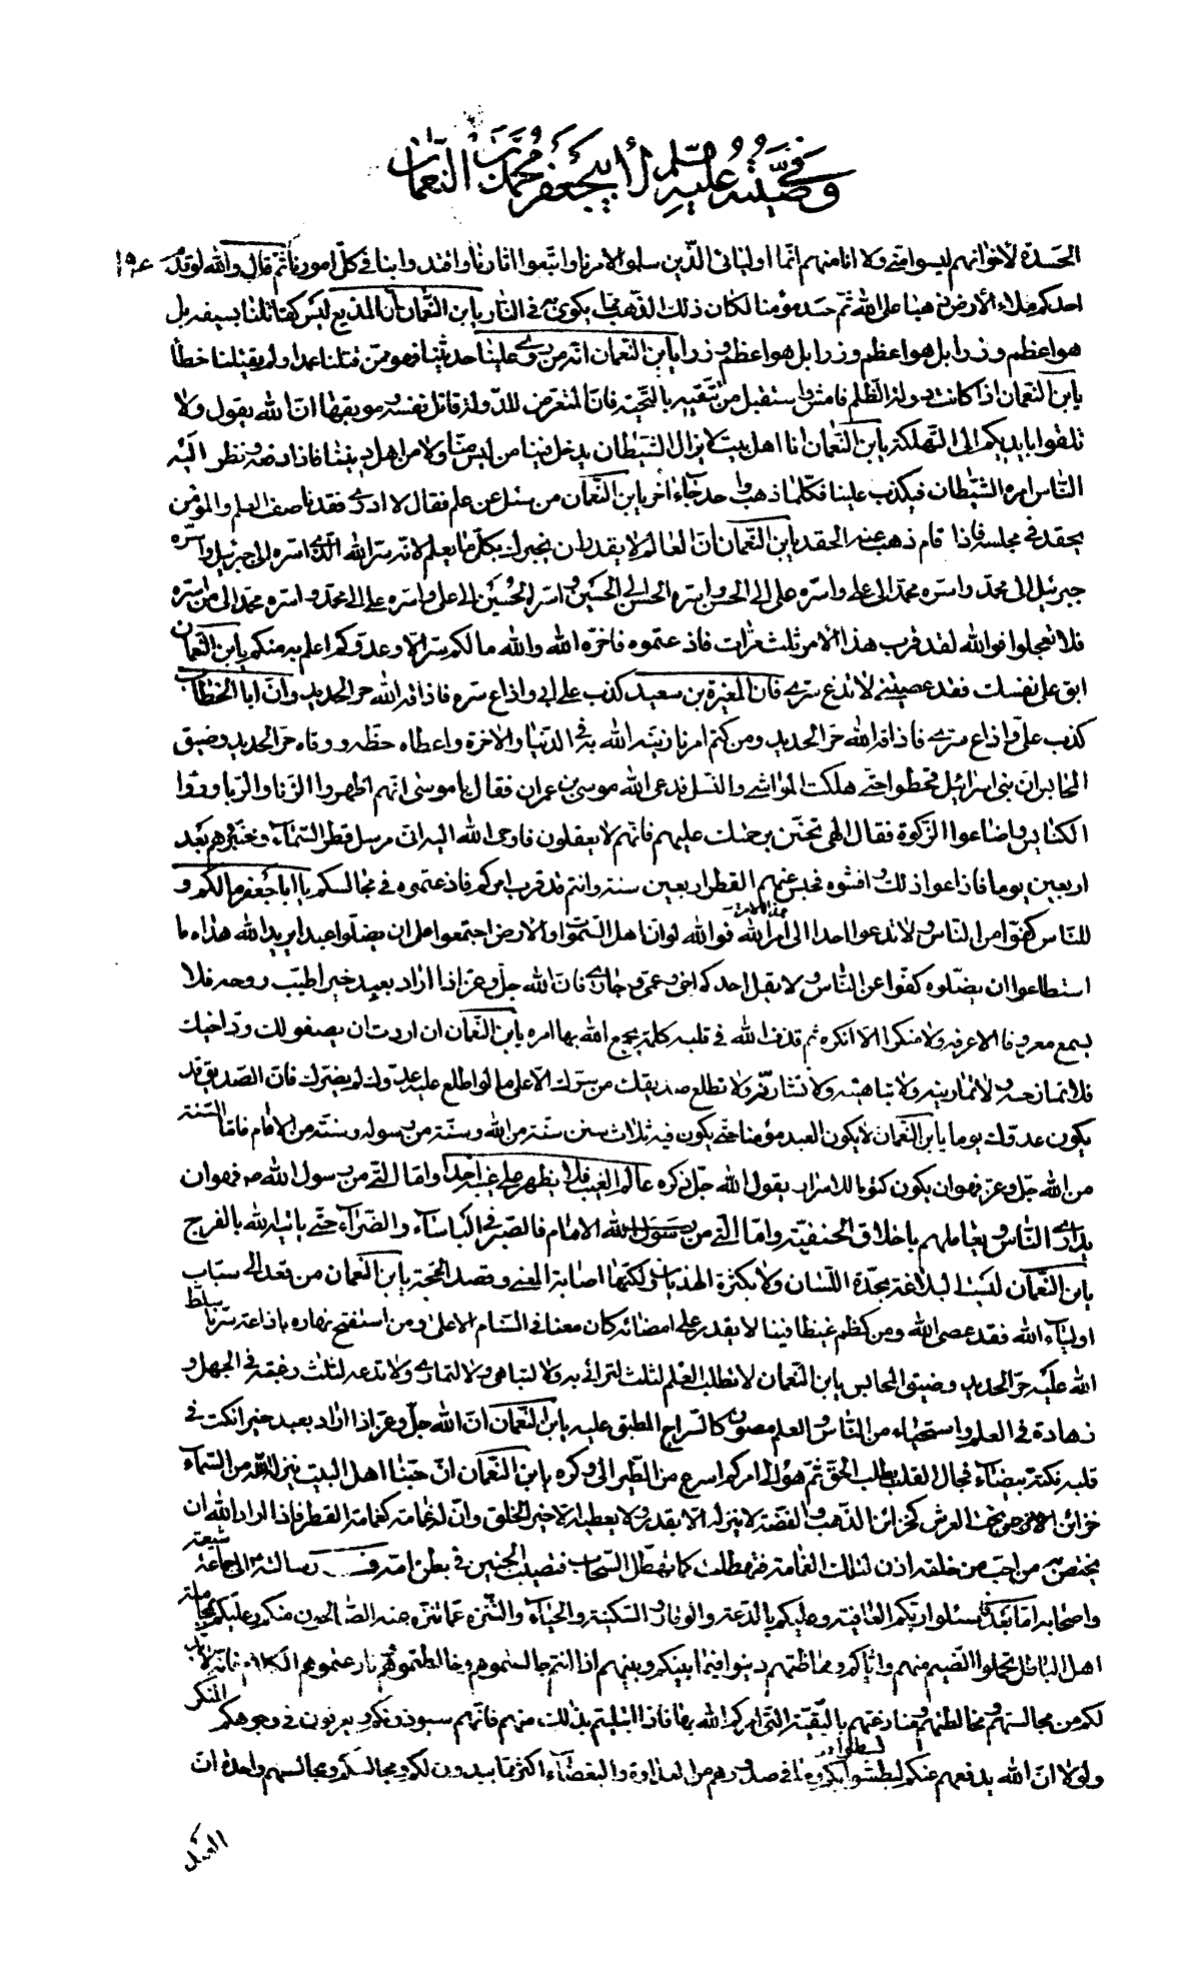 وصيته عليه السلم لأبي جعفر محمد بن النعمان
الحسدة لأخوانهم ليسوا مني ولا انا منهم انما اوليائى الذين سلموا لامرنا واتبعوا اثارنا واقتدوا بنا فى كل امورنا ثم قال والله لو قدم
احدكم ملاء الأرض ذهبا على الله ثم حسد مؤمنا لكان ذلك الذهب مما يكوى به فى النار يابن النعمان ان المذيع ليس كقاتلنا بسيفه بل
هو اعظم وزرا بل هو اعظم وزرا بل هو اعظم وزرا يابن النعمان انه من روى علينا حديثا فهو ممن قتلنا عمدا ولم يقتلنا خطأ
يابن النعمان اذا كانت دولة الظلم فامش واستقبل من تتقيه بالتحية فان المتعرض للدولة قاتل نفسه وموبقها ان الله يقول ولا
تلقوا بايديكم الى التهلكة يابن النعمان انا اهل بيت لا يزال الشيطان يدخل فينا من ليس منا ولا من اهل ديننا فاذا رفعه ونظر اليه
الناس امره الشيطان فيكذب علينا فكلما ذهب واحد جاء اخر يابن النعمان من سئل عن علم فقال لا ادرى فقد ناصف العلم والمؤمن
يحقد فى مجلسه فاذا قام ذهب عنه الحقد يابن النعمان ان العالم لا يقدر ان يخبرك بكل ما يعلم لانه سر الله الذى اسره الى جبرئيل واسره
جبرئيل الى محمد واسره محمد الى على واسره على الى الحسن واسره الحسن الى الحسين واسره الحسين الى على واسره على الى محمد واسره محمد الى من اسره
فلا تعجلوا فوالله لقد قرب هذا الأمر ثلث مرات فاذعتموه فاخره الله والله ما لكم سر الا وعدوكم اعلم به منكم يابن النعمان
ابق على نفسك فقد عصيتنى لا تذع سرى فان المغيرة بن سعيد كذب على ابى واذاع سره فاذاقه الله حر الحديد وان ابا الخطاب
كذب على واذاع سرى فاذاقه الله حر الحديد ومن كتم امرنا زينه الله به فى الدنيا والاخرة واعطاه حظه ووقاه حر الحديد وضيق
المحابس ان بنى اسرائيل قحطوا حتى هلكت المواشى والنسل فدعى الله موسى بن عمران فقال يا موسى انهم اظهروا الزنا والربا وعمروا
الكنايس واضاعوا الزكوة فقال الهى تحنن برحمتك عليهم فانهم لا يعقلون فاوحى الله اليه انى مرسل قطر السماء ومختبرهم بعد
اربعين يوما فاذاعوا ذلك وافشوه فحبس عنهم القطر اربعين سنة وانتم قد قرب امركم فاذعتموه فى مجالسكم يا ابا جعفر مالكم و
للناس كفوا من الناس ولا تدعوا احدا الى امر الله فوالله لو ان اهل السموات والارض اجتمعوا على ان يضلوا عبدا يريد الله هداه ما
استطاعوا ان يضلوه كفوا عن الناس ولا يقل احدكم اخى وعمى وجارى فان الله جل وعز اذا اراد بعبد خيرا طيب روحه فلا
يسمع معروفا الا عرفه ولا منكرا الا انكره ثم قذف الله فى قلبه كلمة يجمع الله بها امره يابن النعمان ان اردت ان يصفو لك ود اخيك
فلا تمازحنه ولا تمارينه ولا تباهينه ولا تشارنه ولا تطلع صديقك من سرك الا على ما لو اطلع عليه عدوك لم يضرك فان الصديق قد
يكون عدوك يوما يابن النعمان لا يكون العبد مؤمنا حتى يكون فيه ثلاث سنن سنة من الله وسنة من رسوله وسنة من الامام فاما السنة
من الله جل وعز فهو ان يكون كتوما للاسرار يقول الله جل ذكره عالم الغيب فلا يظهر على غيبه احدا واما التى من رسول الله ص فهو ان
يدارى الناس ويعاملهم باخلاق الحنيفية واما التى من رسول الله الامام فالصبر فى الباساء والضراء حتى ياتيه الله بالفرج
يابن النعمان ليست البلاغة بحدة اللسان ولا بكثرة الهذيان ولكنها اصابة المعنى وقصد الحجة يابن النعمان من قعد الى سباب
اولياء الله فقد عصى الله ومن كظم غيظا فينا لا يقدر على امضائه كان معنا فى السنام الاعلى ومن استفتح نهاره باذاعة سرنا سلط
الله عليه حر الحديد وضيق المحابس يابن النعمان لا تطلب العلم لثلث لترائى به ولا لتباهى ولا لتمارى ولا تدعه لثلث رغبة فى الجهل و
زهادة فى العلم واستحياء من الناس والعلم مصون كالسراج المطبق عليه يابن النعمان ان الله جل وعز اذا اراد بعبد خيرا نكت فى
قلبه نكتة بيضاء فجال القلب يطلب الحق ثم هو الى امركم اسرع من الطير الى وكره يابن النعمان ان حبنا اهل البيت ينزله الله من السماء
خزائن تحت العرش كخزائن الذهب والفضة لا ينزله الا بقدر ولا يعطيه الا خير الخلق وان له غمامة كغمامة القطر فاذا اراد الله ان
يختص به من احب من خلقه اذن لتلك الغمامة فتهطلت كما تهطل السحاب فتصيب الجنين فى بطن امه رسالته الى جماعة شيعته
واصحابه اما بعد فاسئلوا ربكم العافية وعليكم بالدعة والوقار والسكينة والحياء والتنزه عما تنزه عنه الصالحون منكم وعليكم بمجاملة
اهل الباطل تحملوا الضيم منهم واياكم ومماظتهم دينوا فيما بينكم وبينهم اذا انتم جالستموهم وخالطتموهم ونازعتموهم الكلام فانه لا بد
لكم من مجالستهم ومخالطتهم ومنازعتهم بالتقية التى امركم الله بها فاذا ابتليتم بذلك منهم فانهم سيؤذونكم ويعرفون فى وجوهكم المنكر
ولولا ان الله يدفعهم عنكم لبطشوا بكم وما فى صدورهم من العداوة والبغضاء اكثر مما يبدون لكم ومجالسكم ومجالسهم واحدة ان